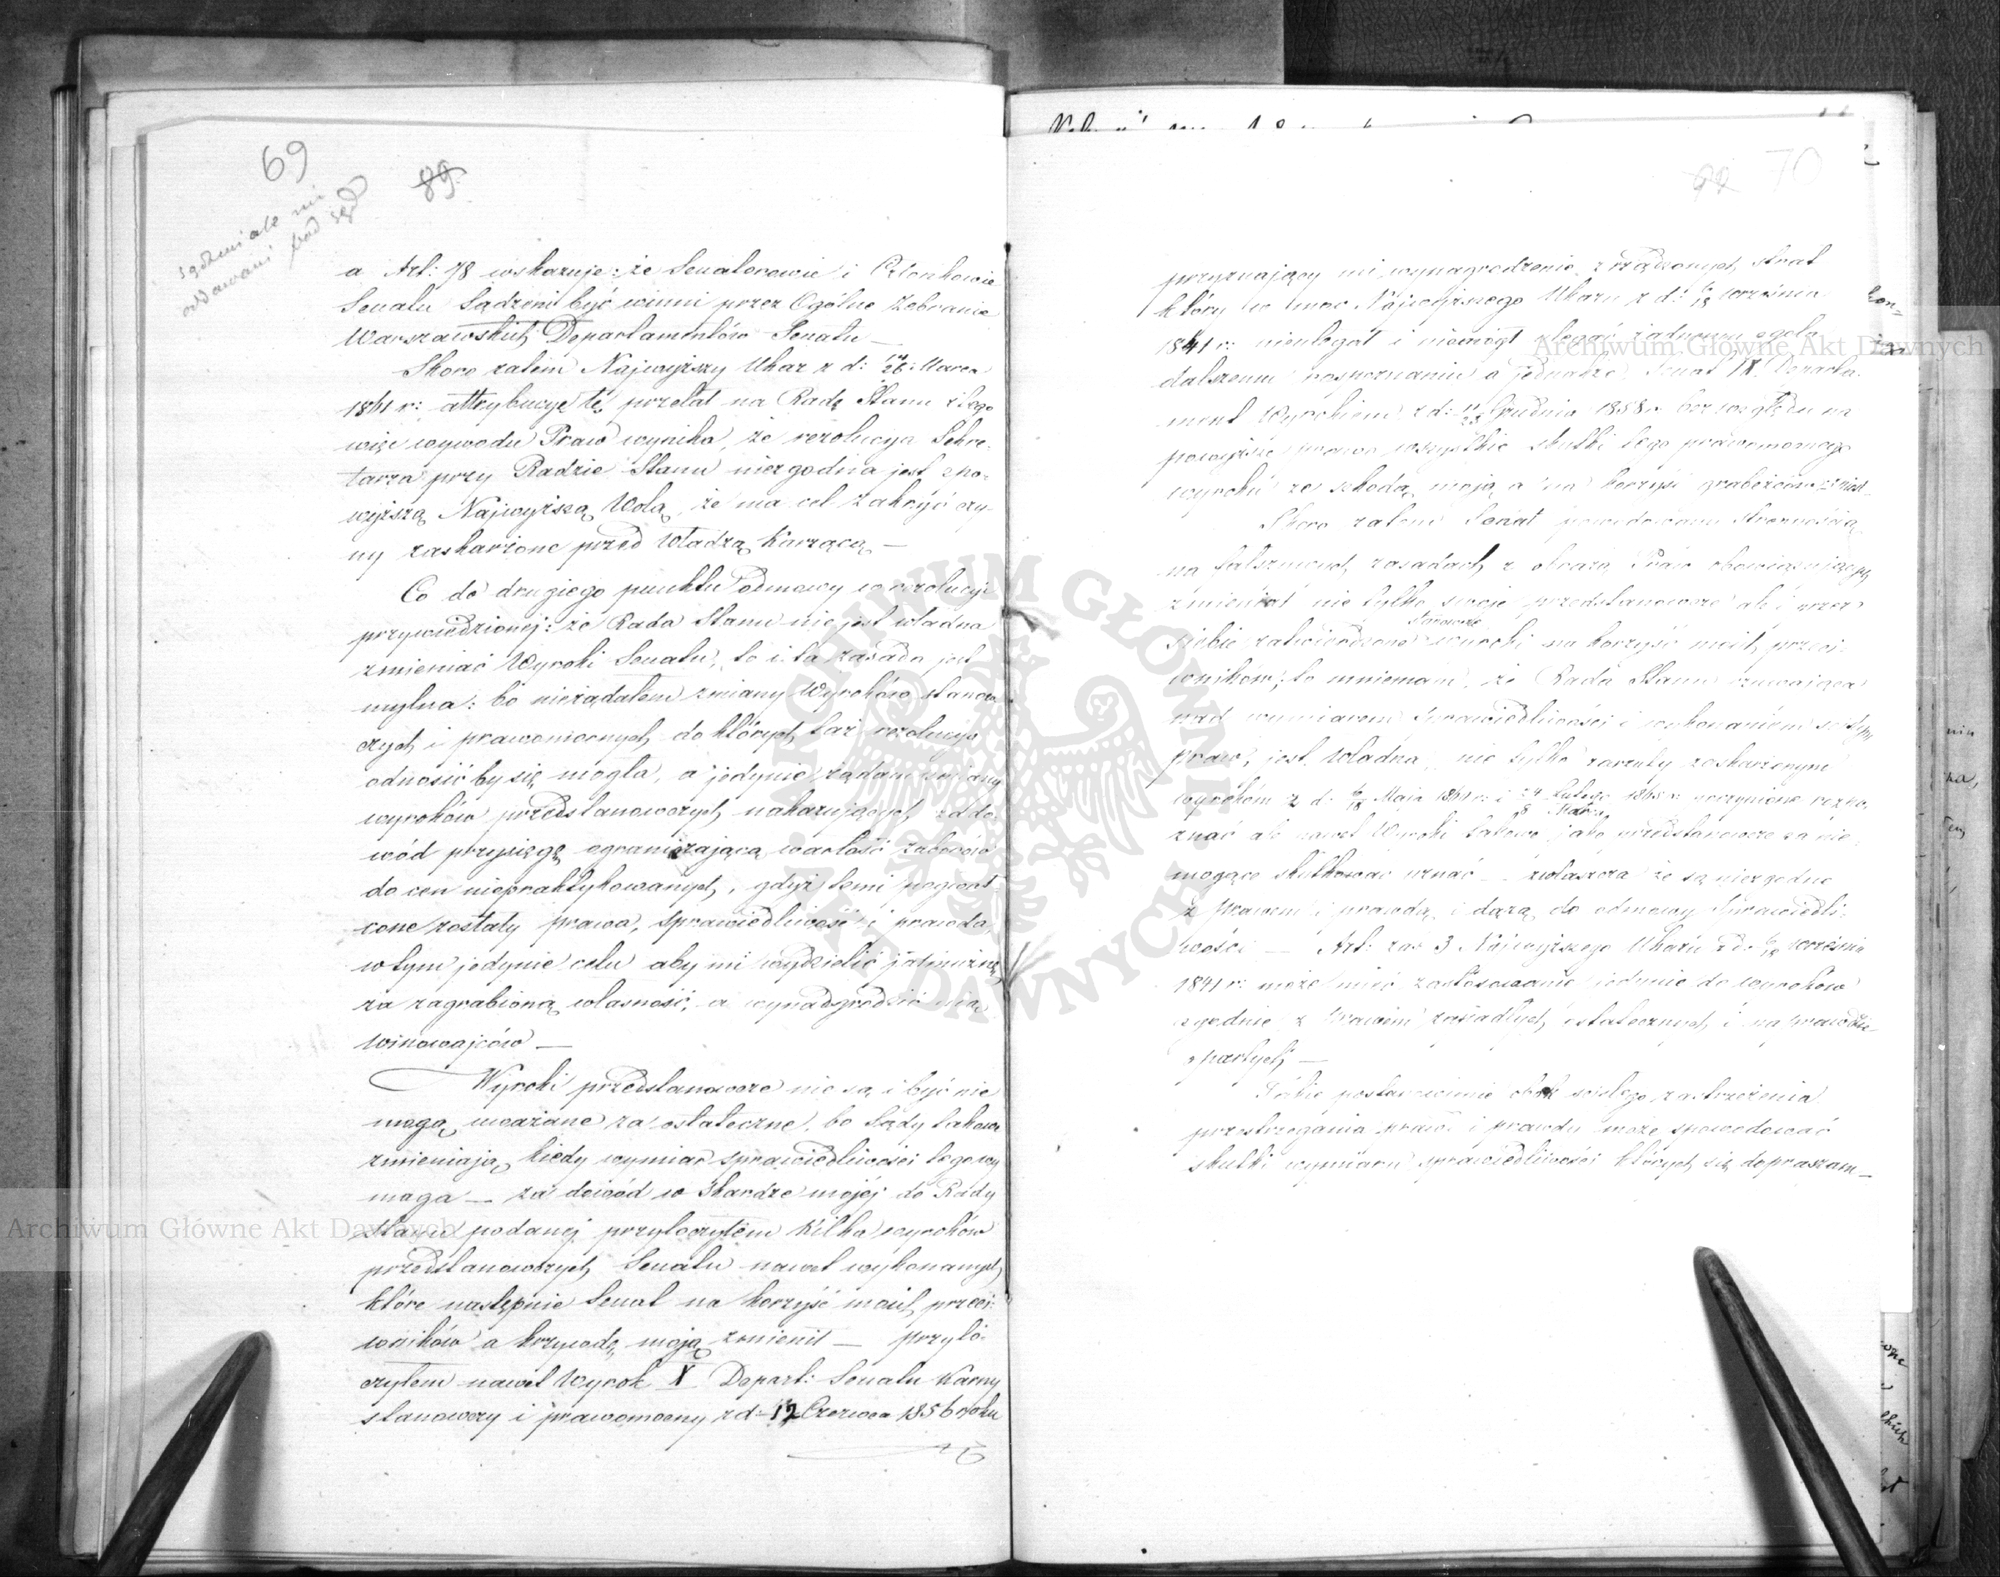 69
89.
a Art: 78 wskazuje: że Senatorowie i Członkowie
Senatu Sądzeni być winni przez Ogólne Zebranie
Warszawskich Departamentów Senatu —
Skoro zatem Najwyższy Ukaz z d: 14/26 Marca
1861 r: attrybucyę tę przelał na Radę Stanu z tego
więc wywodu Praw wynika, że rezolucya Sekre-
tarza przy Radzie Stanu niezgodna jest z po-
wyższą Najwyższą Wolą, że ma cel zakryć czy-
ny zaskarżone przed Władzą Karzącą —
Co do drugiego punktu odmowy w rezolucji
przywiedzionej: że Rada Stanu nie jest władna
zmieniać Wyroki Senatu, to i ta zasada jest
mylna: bo nieżądałem zmiany Wyroków stanow-
czych i prawomocnych do których taż rezolucya
odnosić by się mogła, a jedynie żądam zmiany
wyroków przedstanowczych nakazujących na do-
wód przysięgę ograniczającą wartość zaborów
do cen niepraktykowanych, gdyż temi pogwał-
cone zostały prawa, sprawiedliwość i prawda
w tym jedynie celu aby mi wydzielić jałmużnę
za zagrabioną własność, a wynadgrodzić
winowajców —
Wyroki przedstanowcze nie są i być nie
mogą uważane za ostateczne, bo Sądy takowe
zmieniają, kiedy wymiar sprawiedliwości tego wy-
maga — za dowód w Skardze mojéj do Rady
Stanu podanej przytoczyłem kilka wyroków
przedstanowczych Senatu nawet wykonanych
które następnie Senat na korzyść moich przeci-
wników a krzywdę moją zmienił — przyto-
czyłem nawet Wyrok X Depart: Senatu Karny
stanowczy i prawomocny z d: 12 Czerwca 1856 roku
70
przyznający mi wynagrodzenie zrządzonych strat
który w moc Najwyższego Ukazu z d: 6/18 Września
1841 r: nieulegał i niemógł ulegać żadnemu ogole
dalszemu rozpoznaniu a jednakże Senat IX Departa-
ment Wyrokiem z d: Grudnia 1858 r. bez względu na
powyższe prawo wszystkie skutki tego prawomocnego
wyroku ze szkodą moją a na korzyść grabieżców zniósł —
Skoro zatem Senat powodowany stronnością
na fałszywych zasadach z obrazą Praw obowiązujących
zmieniał nie tylko swoje przedstanowcze ale i przez
Siebie zatwierdzone stanowcze wyroki na korzyść moich przeci-
wników; to mniemam, że Rada Stanu czuwająca
nad wymiarem Sprawiedliwości i wykonaniem
praw, jest władna nie tylko zarzuty zaskarżonym
wyrokom z d: 6/18 Maja 1861 r: i 24 Lutego / 8 Marca uczynione rozpo-
znać ale nawet Wyroki takowe jako przedstanowcze za nie-
mogące skutkować uznać — zwłaszcza że są niezgodne
z prawem i prawdą i dążą do odmowy Sprawiedli-
wości — Art: zaś 3 Najwyższego Ukazu z d: 6/18 Września
1841 r: może mieć zastosowanie jedynie do wyroków
zgodnie z Prawem zapadłych ostatecznych i na prawdzie
opartych —
Takie postanowienie obok ścisłego zastrzeżenia
przestrzegania praw i prawdy może spowodować
skutki wymiaru sprawiedliwości których się dopraszam —
Archiwum Główne Akt Dawnych
Archiwum Główne Akt Dawnych
ARCHIWUM GŁÓWNE AKT DAWNYCH